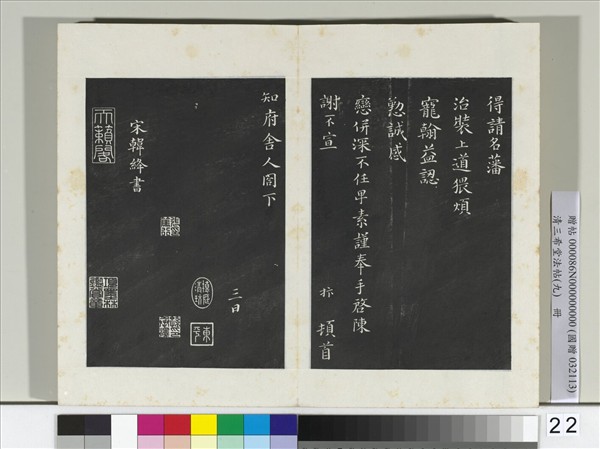 得請名藩
治裝上道猥煩
寵翰益認
懃誠感
戀併深不任卑素謹奉手啓陳
謝不宣 抃 頓首
知府舍人閤下
三日
東平
宋韓絳書
天籟閣
贈帖 000086N000000000 (國贈 032113)
清三希堂法帖(九) 冊
22